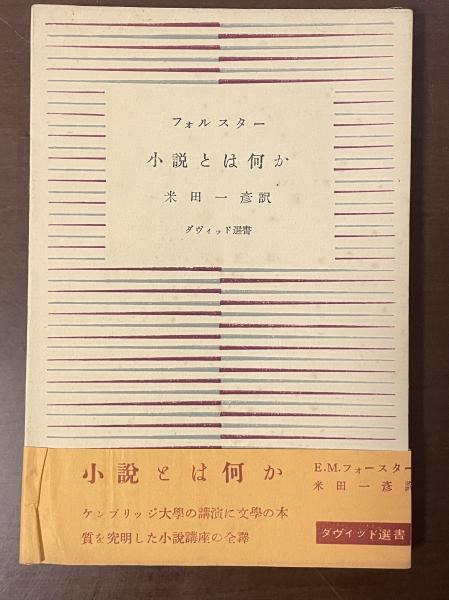 フォルスター
小説とは何か
米田一彦訳
ダヴィッド選書
小說とは何か
E.M.フォースター
米田一彦訳
ケンブリッジ大學の講演に文學の本
質を究明した小説講座の全譯
ダヴィッド選書